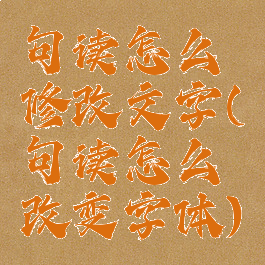 句读怎么
修改文字(
句读怎么
改变字体)